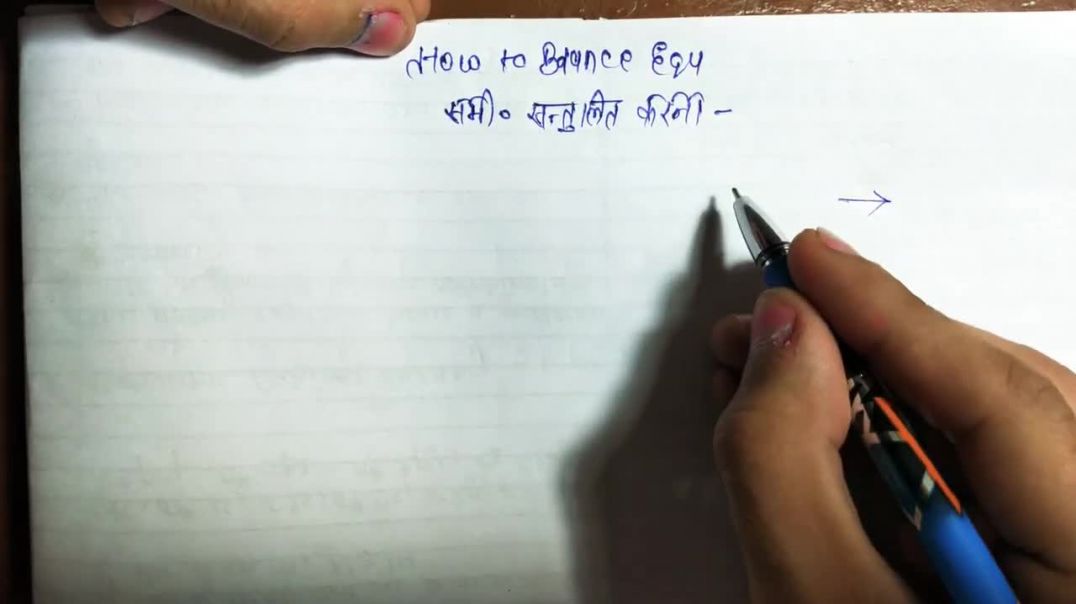 How to Balance Equ
समी० सन्तुलित करनी -
→